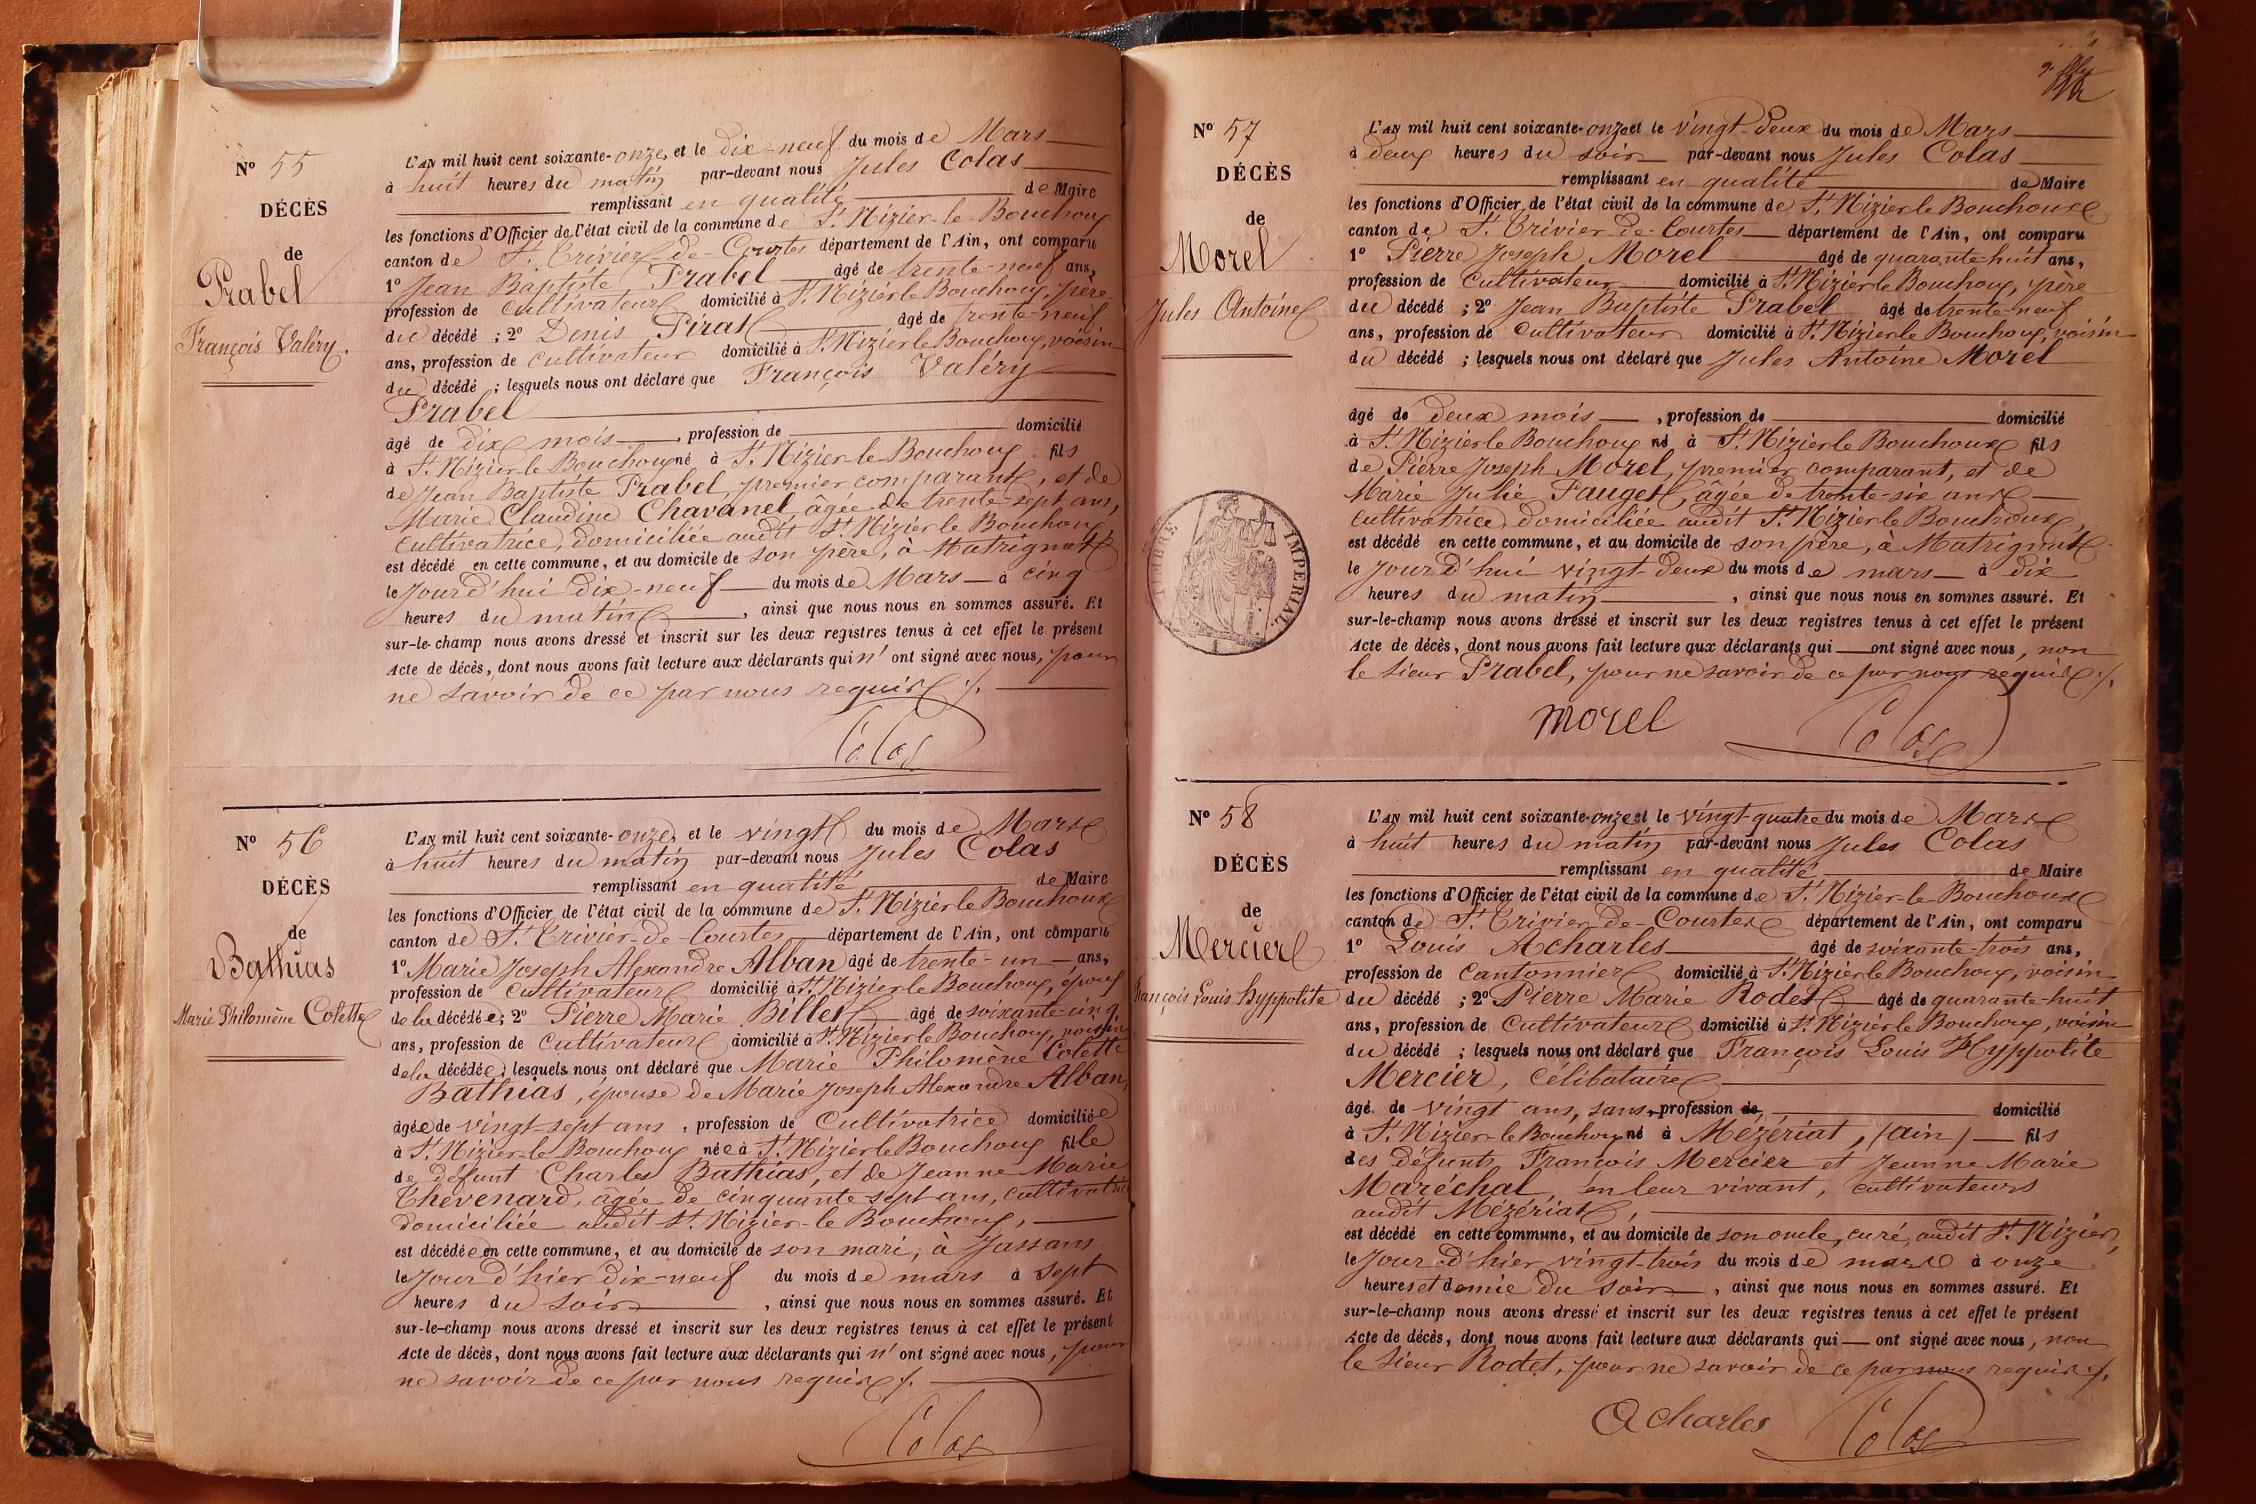 Nº 55
DÉCÈS
de
Prabel
François Valéry.
L'AN mil huit cent soixante-onze, et le dix-neuf du mois de Mars
à huit heures du matin par-devant nous Jules Colas
remplissant en qualité de Maire
les fonctions d'Officier de l'état civil de la commune de St Nizier-le-Bouchoux
canton de St Trivier-de-Courtes département de l'Ain, ont comparu
1º Jean Baptiste Prabel âgé de trente-neuf ans,
profession de cultivateur domicilié à St Nizier le Bouchoux, père
du décédé ; 2º Denis Pirat âgé de trente-neuf
ans, profession de cultivateur domicilié à St Nizier le Bouchoux, voisin
du décédé ; lesquels nous ont déclaré que François Valéry
Prabel
âgé de dix mois, profession de domicilié
à St Nizier-le-Bouchoux né à St Nizier-le-Bouchoux fils
de Jean Baptiste Prabel, premier comparant, et de
Marie Claudine Chavanel, âgée de trente-sept ans,
cultivatrice, domiciliée audit St Nizier le Bouchoux,
est décédé en cette commune, et au domicile de son père, à Matrignat
le jour d'hui dix-neuf du mois de Mars à cinq
heures du matin, ainsi que nous nous en sommes assuré. Et
sur-le-champ nous avons dressé et inscrit sur les deux registres tenus à cet effet le présent
Acte de décès, dont nous avons fait lecture aux déclarants qui n'ont signé avec nous, pour
ne savoir de ce par nous requis ./.
Colas
Nº 56
DÉCÈS
de
Bathias
Marie Philomène Colette
L'AN mil huit cent soixante-onze, et le vingt du mois de Mars
à huit heures du matin par-devant nous Jules Colas
remplissant en qualité de Maire
les fonctions d'Officier de l'état civil de la commune de St Nizier le Bouchoux
canton de St Trivier-de-Courtes département de l'Ain, ont comparu
1º Marie Joseph Alexandre Alban âgé de trente-un ans,
profession de cultivateur domicilié à St Nizier le Bouchoux, époux
de la décédée ; 2º Pierre Marie Billet âgé de soixante-cinq
ans, profession de cultivateur domicilié à St Nizier le Bouchoux, voisin
de la décédée ; lesquels nous ont déclaré que Marie Philomène Colette
Bathias, épouse de Marie Joseph Alexandre Alban,
âgée de vingt-sept ans, profession de cultivatrice domiciliée
à St Nizier-le-Bouchoux née à St Nizier le Bouchoux fille
de défunt Charles Bathias, et de Jeanne Marie
Thévenard, âgée de cinquante sept ans, cultivatrice
domiciliée audit St Nizier-le Bouchoux,
est décédée en cette commune, et au domicile de son mari, à Jassans
le jour d'hier dix-neuf du mois de mars à sept
heures du soir, ainsi que nous nous en sommes assuré. Et
sur-le-champ nous avons dressé et inscrit sur les deux registres tenus à cet effet le présent
Acte de décès, dont nous avons fait lecture aux déclarants qui n'ont signé avec nous, pour
ne savoir de ce par nous requis ./.
Colas
Nº 57
DÉCÈS
de
Morel
Jules Antoine
TIMBRE IMPERIAL.
L'AN mil huit cent soixante-onze et le vingt-deux du mois de Mars
à deux heures du soir par-devant nous Jules Colas
remplissant en qualité de Maire
les fonctions d'Officier de l'état civil de la commune de St Nizier le Bouchoux
canton de St Trivier-de-Courtes département de l'Ain, ont comparu
1º Pierre Joseph Morel âgé de quarante-huit ans,
profession de cultivateur domicilié à St Nizier le Bouchoux, père
du décédé ; 2º Jean Baptiste Prabel âgé de trente-neuf
ans, profession de cultivateur domicilié à St Nizier le Bouchoux, voisin
du décédé ; lesquels nous ont déclaré que Jules Antoine Morel
âgé de deux mois, profession de domicilié
à St Nizier le Bouchoux né à St Nizier le Bouchoux fils
de Pierre Joseph Morel, premier comparant, et de
Marie Julie Fauget, âgée de trente-six ans
cultivatrice domiciliée audit St Nizier le Bouchoux,
est décédé en cette commune, et au domicile de son père, à Matrignat
le jour d'hui vingt-deux du mois de mars à dix
heures du matin, ainsi que nous nous en sommes assuré. Et
sur-le-champ nous avons dressé et inscrit sur les deux registres tenus à cet effet le présent
Acte de décès, dont nous avons fait lecture aux déclarants qui ont signé avec nous, non
le sieur Prabel, pour ne savoir de ce par nous requis ./.
Morel Colas
Nº 58
DÉCÈS
de
Mercier
François Louis Hyppolite
L'AN mil huit cent soixante-onze et le vingt-quatre du mois de Mars
à huit heures du matin par-devant nous Jules Colas
remplissant en qualité de Maire
les fonctions d'Officier de l'état civil de la commune de St Nizier-le Bouchoux
canton de St Trivier-de-Courtes département de l'Ain, ont comparu
1º Louis Acharles âgé de soixante-trois ans,
profession de cantonnier domicilié à St Nizier le Bouchoux, voisin
du décédé ; 2º Pierre Marie Rodet âgé de quarante-huit
ans, profession de cultivateur domicilié à St Nizier le Bouchoux, voisin
du décédé ; lesquels nous ont déclaré que François Louis Hyppolite
Mercier, célibataire
âgé de vingt ans, sans profession de, domicilié
à St Nizier-le Bouchoux né à Mézériat, (ain) fils
des défunts François Mercier et Jeanne Marie
Maréchal, en leur vivant, cultivateurs
audit Mézériat,
est décédé en cette commune, et au domicile de son oncle, curé, audit St Nizier,
le jour d'hier vingt-trois du mois de mars à onze
heures et demie du soir, ainsi que nous nous en sommes assuré. Et
sur-le-champ nous avons dressé et inscrit sur les deux registres tenus à cet effet le présent
Acte de décès, dont nous avons fait lecture aux déclarants qui ont signé avec nous, non
le sieur Rodet, pour ne savoir de ce par nous requis ./.
Acharles Colas